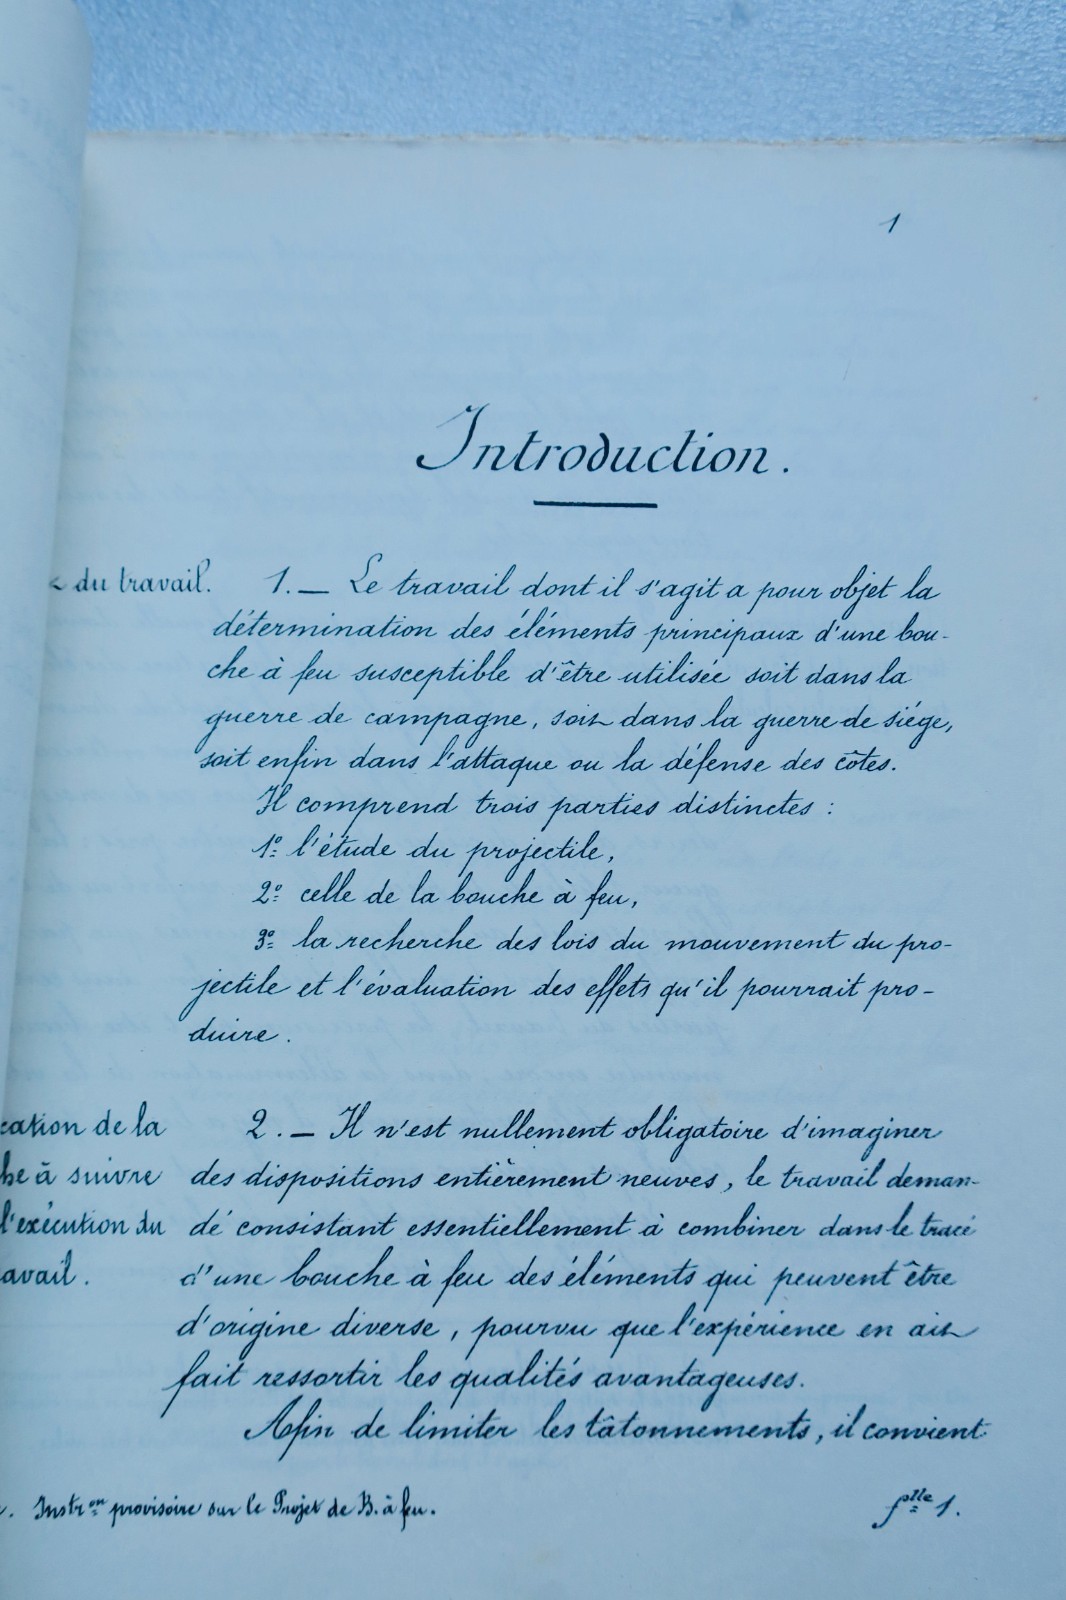 1
Introduction.
du travail.
1. — Le travail dont il s'agit a pour objet la
détermination des éléments principaux d'une bou-
che à feu susceptible d'être utilisée soit dans la
guerre de campagne, soit dans la guerre de siége,
soit enfin dans l'attaque ou la défense des côtes.
Il comprend trois parties distinctes :
1º l'étude du projectile,
2º celle de la bouche à feu,
3º la recherche des lois du mouvement du pro-
jectile et l'évaluation des effets qu'il pourrait pro-
duire.
cation de la
he à suivre
l'exécution du
avail.
2. — Il n'est nullement obligatoire d'imaginer
des dispositions entièrement neuves, le travail deman-
dé consistant essentiellement à combiner dans le tracé
d'une bouche à feu des éléments qui peuvent être
d'origine diverse, pourvu que l'expérience en ait
fait ressortir les qualités avantageuses.
Afin de limiter les tâtonnements, il convient
. Instron provisoire sur le Projet de B. à feu.
flle 1.